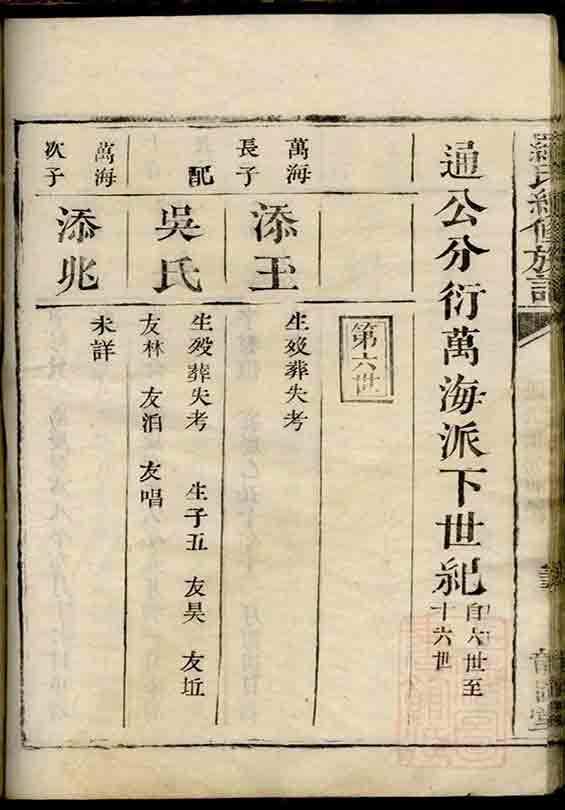 通公分衍萬海派下世紀自六世至
十六世
第六世
萬海
長子
添玉
生歿葬失考
配
吳氏
生歿葬失考 生子五 友昊 友坵
友林 友泊 友唱
萬海
次子
添兆
未詳
羅氏續修族譜